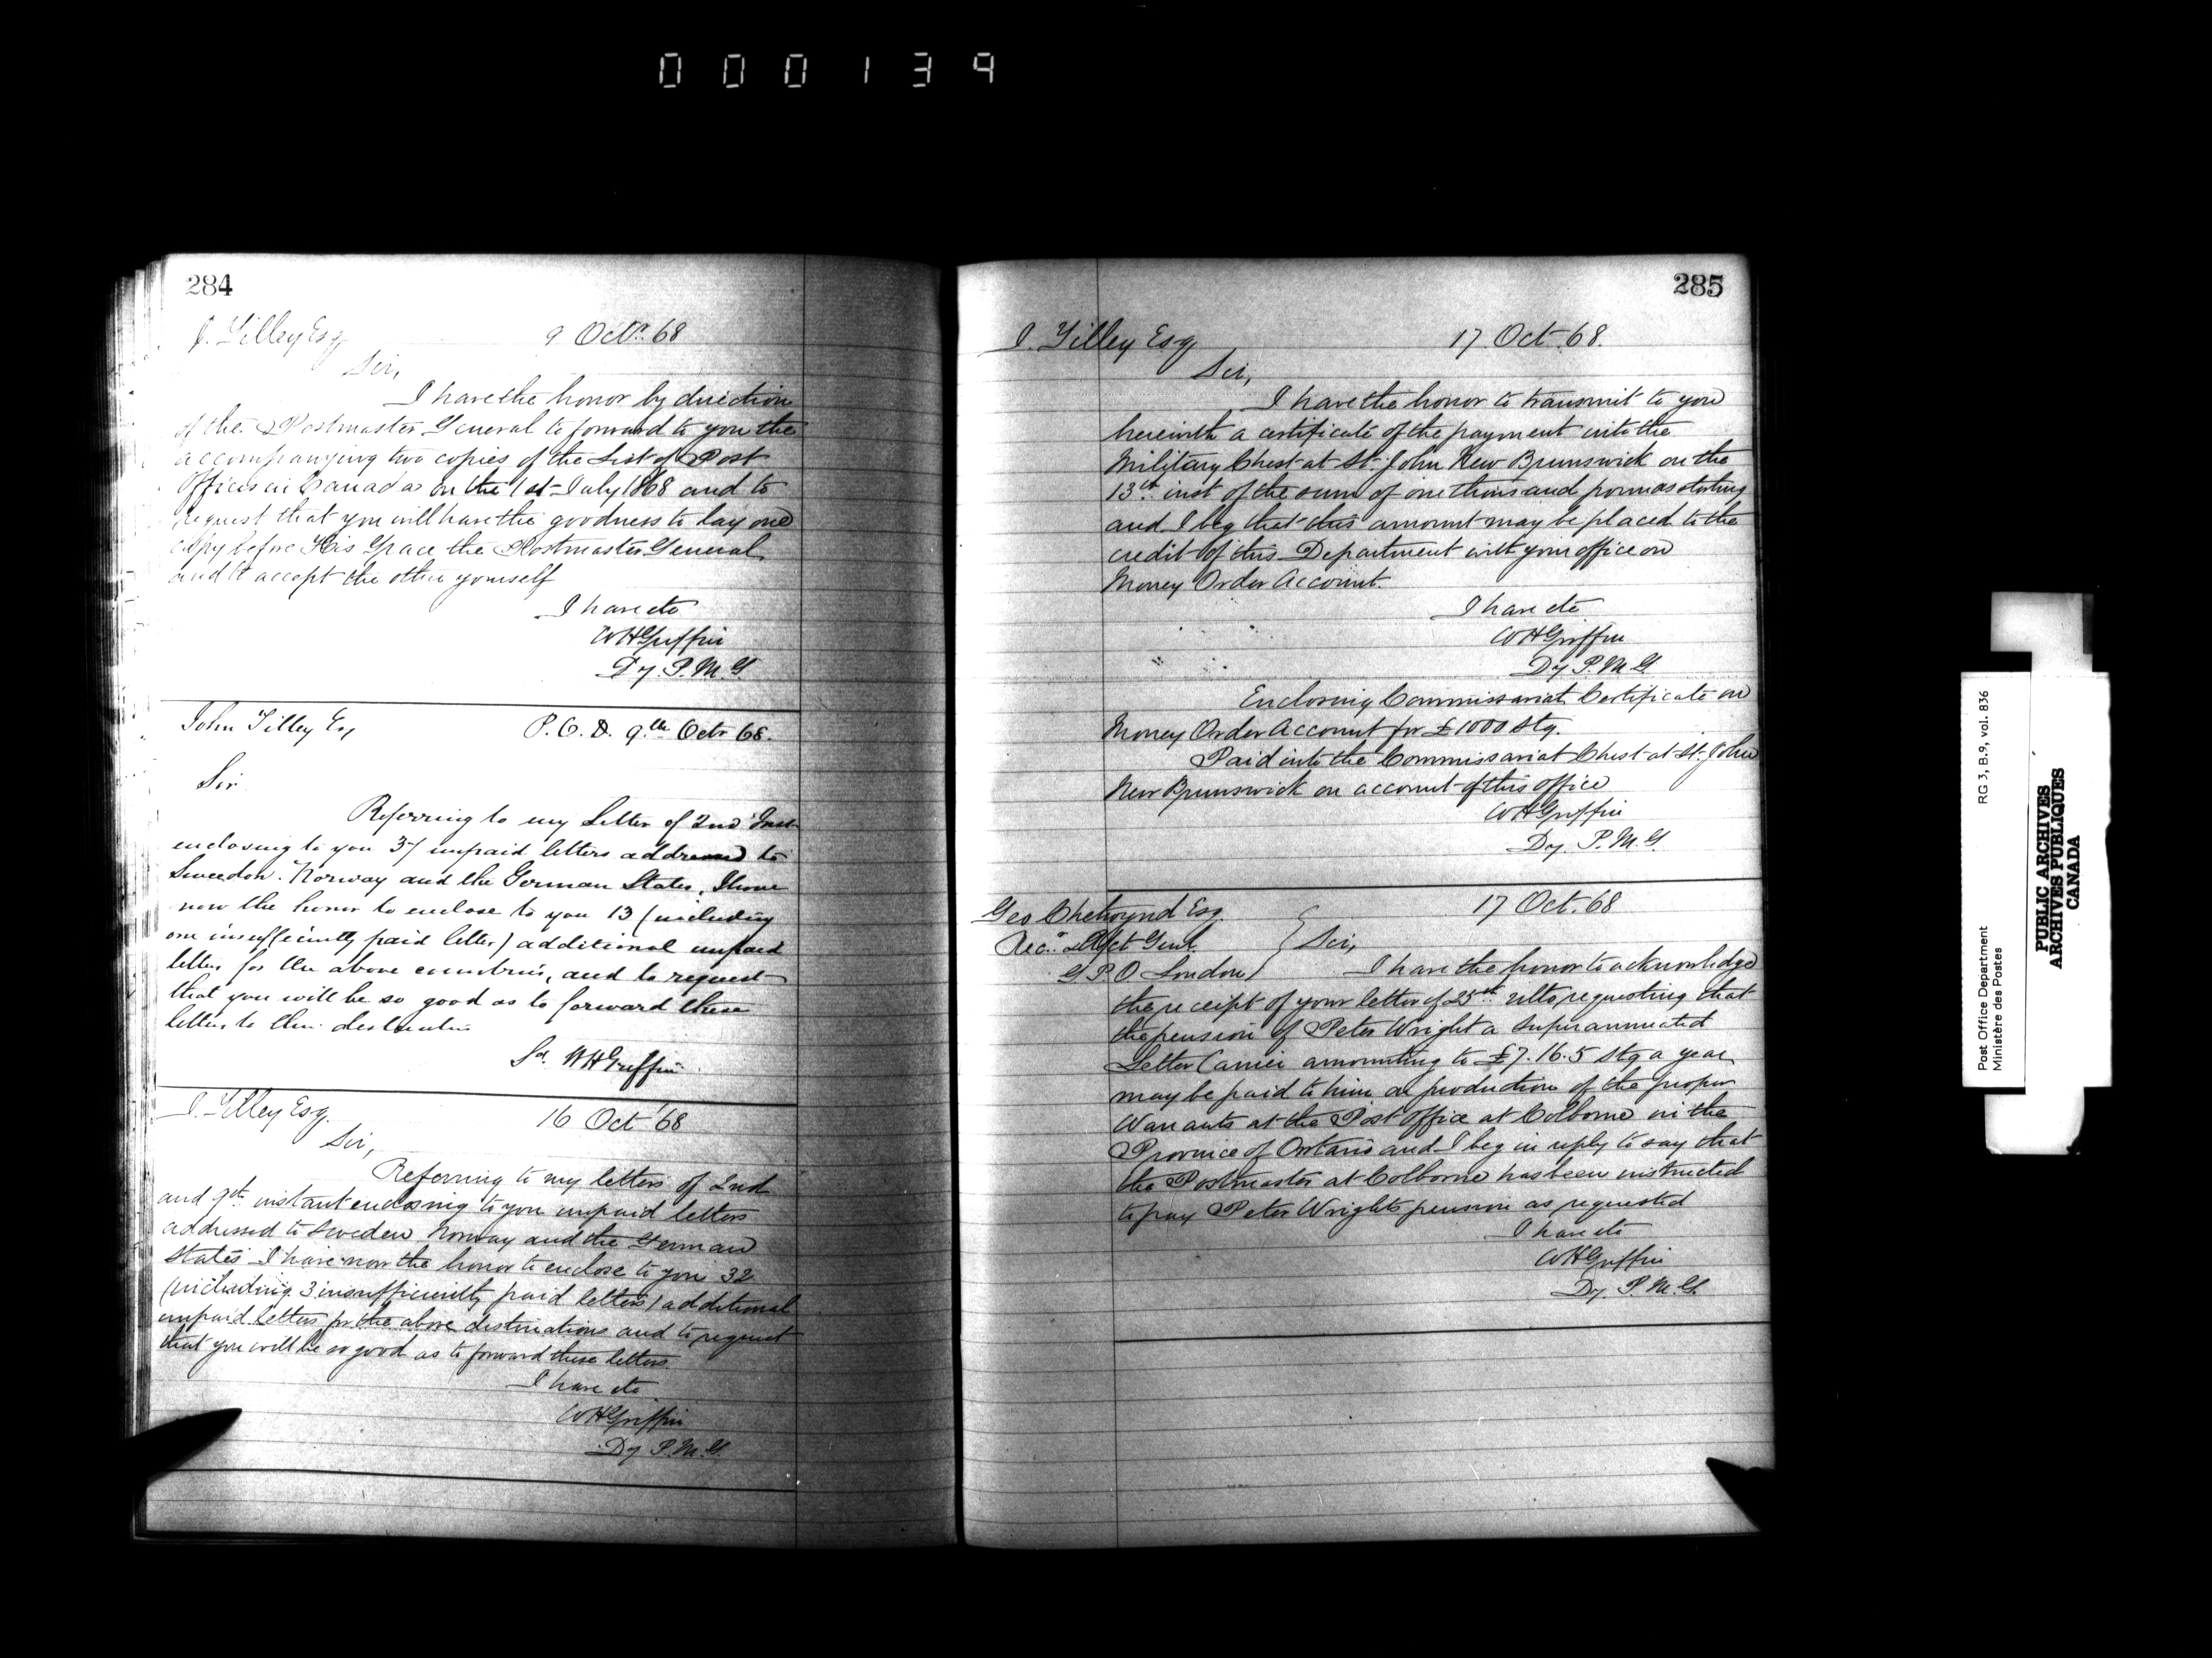 000139
284
J. Tilley Esq 9 Octr. 68
Sir,
I have the honor by direction
of the Postmaster General to forward to you the
accompanying two copies of the List of Post
Offices in Canada on the 1st July 1868 and to
request that you will have the goodness to lay one
copy before His Grace the Postmaster General
and to accept the other yourself
I have etc
WHGriffin
Dy. P.M.G
John Tilley Esq P.O.D. 9th Octr 68.
Sir
Referring to my Letter of 2nd Inst
enclosing to you 37 unpaid letters addressed to
Sweedon. Norway and the German States, I have
now the honor to enclose to you 13 (including
one insufficiently paid letter) additional unpaid
letters for the above countries, and to request
that you will be so good as to forward these
letters to their destination
Sd. WHGriffin
J. Tilley Esq. 16 Oct 68
Sir,
Referring to my letters of 2nd
and 9th instant enclosing to you unpaid letters
addressed to Sweden Norway and the German
States I have now the honor to enclose to you 32
(including 3 insufficiently paid letters) additional
unpaid letters for the above destinations and to request
that you will be so good as to forward these letters.
I have etc
WHGriffin
Dy P.M.G.
285
J. Tilley Esq 17 Oct. 68.
Sir,
I have the honor to transmit to you
herewith a certificate of the payment into the
Military Chest at St. John New Brunswick on the
13th inst of the sum of one thousand pounds sterling
and I beg that this amount may be placed to the
credit of this Department with your office on
Money Order Account.
I have etc
WHGriffin
Dy P.M.G
Enclosing Commissariat Certificate on
Money Order Account for £1000 stg.
Paid into the Commissariat Chest at St. John
New Brunswick on account of this office
WHGriffin
Dy. P.M.G.
Geo Chetwynd Esq. 17 Oct. 68
Recr. & Acct Genl. Sir,
G.P.O London I have the honor to acknowledge
the receipt of your letter of 25th ulto requesting that
the pension of Peter Wright a superannuated
Letter Carrier amounting to £7.16.5 stg a year
may be paid to him on production of the proper
Warrants at the Post Office at Colborne in the
Province of Ontario and I beg in reply to say that
the Postmaster at Colborne has been instructed
to pay Peter Wrights pension as requested
I have etc
WHGriffin
Dy. P.M.G.
Post Office Department RG 3, B.9, vol. 836
Ministère des Postes
PUBLIC ARCHIVES
ARCHIVES PUBLIQUES
CANADA